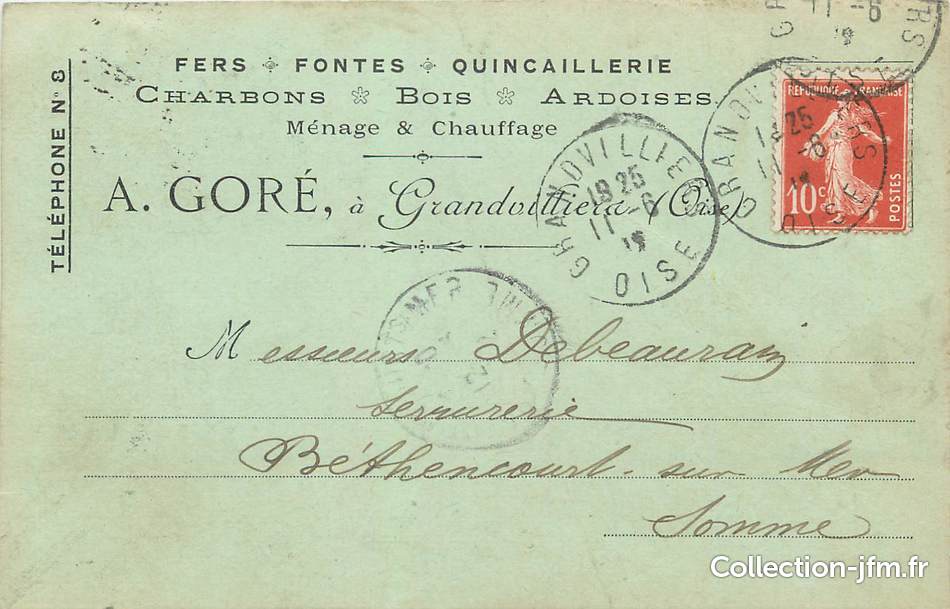 TÉLÉPHONE N° 8
FERS FONTES QUINCAILLERIE
CHARBONS BOIS ARDOISES
Ménage & Chauffage
A. GORÉ, à Grandvilliers (Oise)
RÉPUBLIQUE FRANÇAISE
10c
POSTES
GRANDVILLIERS
18 25
11 -6
OISE
18 25
11 -6
OISE
11 -6
Messieurs Debeaurain
serrurerie
Béthencourt-sur Mer
Somme
Collection-jfm.fr